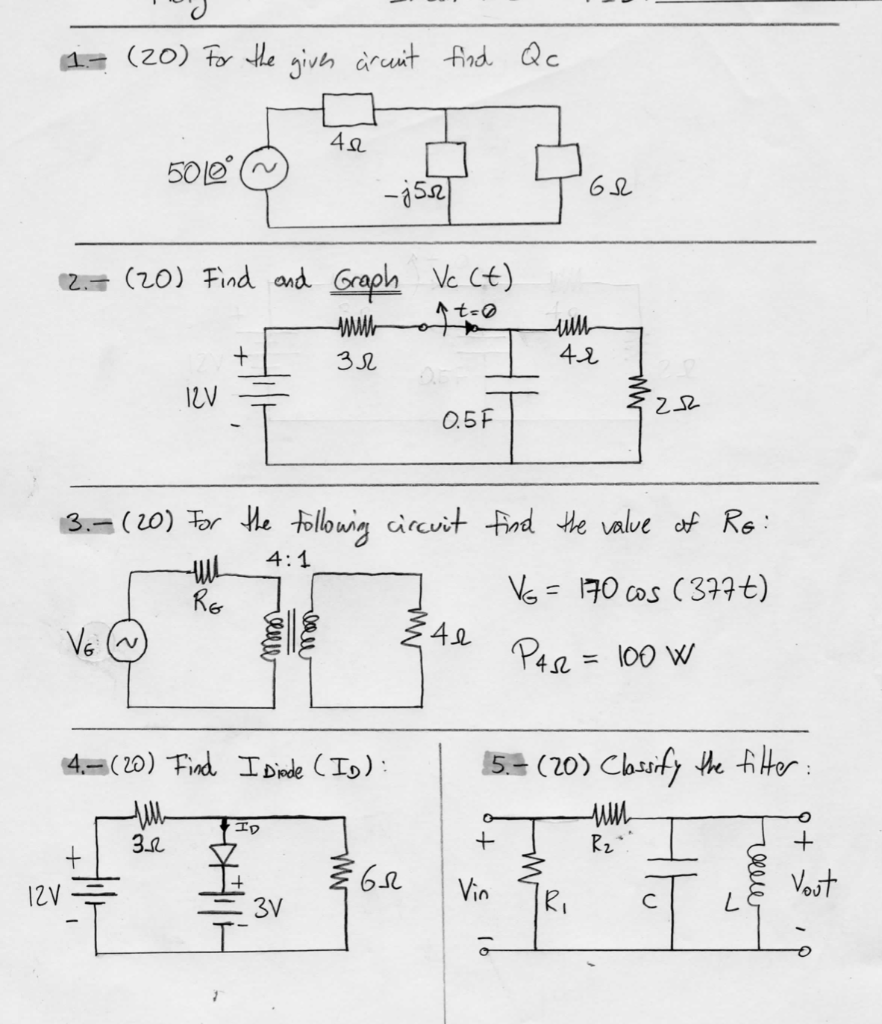 1.- (20) For the given circuit find Qc
4Ω
50∠0°
-j5Ω
6Ω
2.- (20) Find and Graph Vc (t)
t=0
3Ω
4Ω
+
12V
-
0.5F
2Ω
3.- (20) For the following circuit find the value of RG:
4:1
RG
VG = 170 cos (377t)
VG
4Ω
P4Ω = 100 W
4.- (20) Find I Diode (ID):
3Ω
ID
+
12V
-
+
3V
-
6Ω
5.- (20) Classify the filter:
+
R2
+
Vin
R1
C
L
Vout
-
-